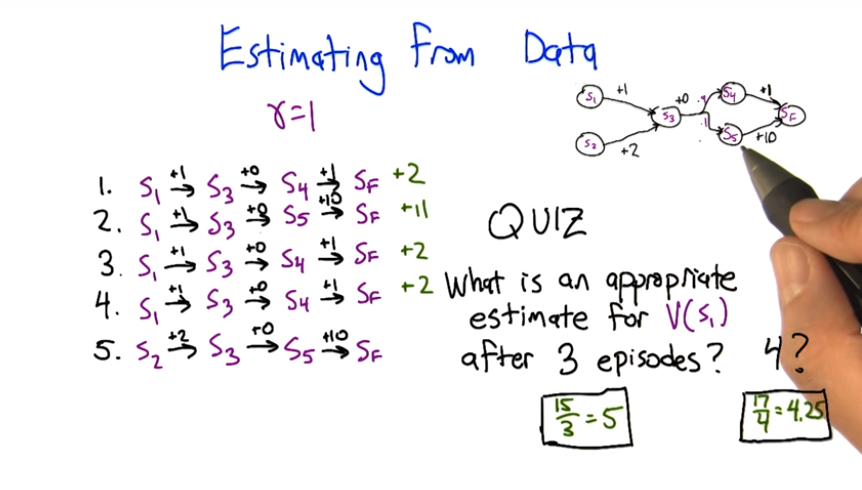 Estimating From Data
γ=1
S1 +1 S3 +0 .9 S4 +1 SF
S2 +2 .1 S5 +10
1. S1 +1→ S3 +0→ S4 +1→ SF +2
2. S1 +1→ S3 +0→ S5 +10→ SF +11
3. S1 +1→ S3 +0→ S4 +1→ SF +2
4. S1 +1→ S3 +0→ S4 +1→ SF +2
5. S2 +2→ S3 +0→ S5 +10→ SF
QUIZ
What is an appropriate
estimate for V(S1)
after 3 episodes? 4?
15/3 = 5
17/4 = 4.25